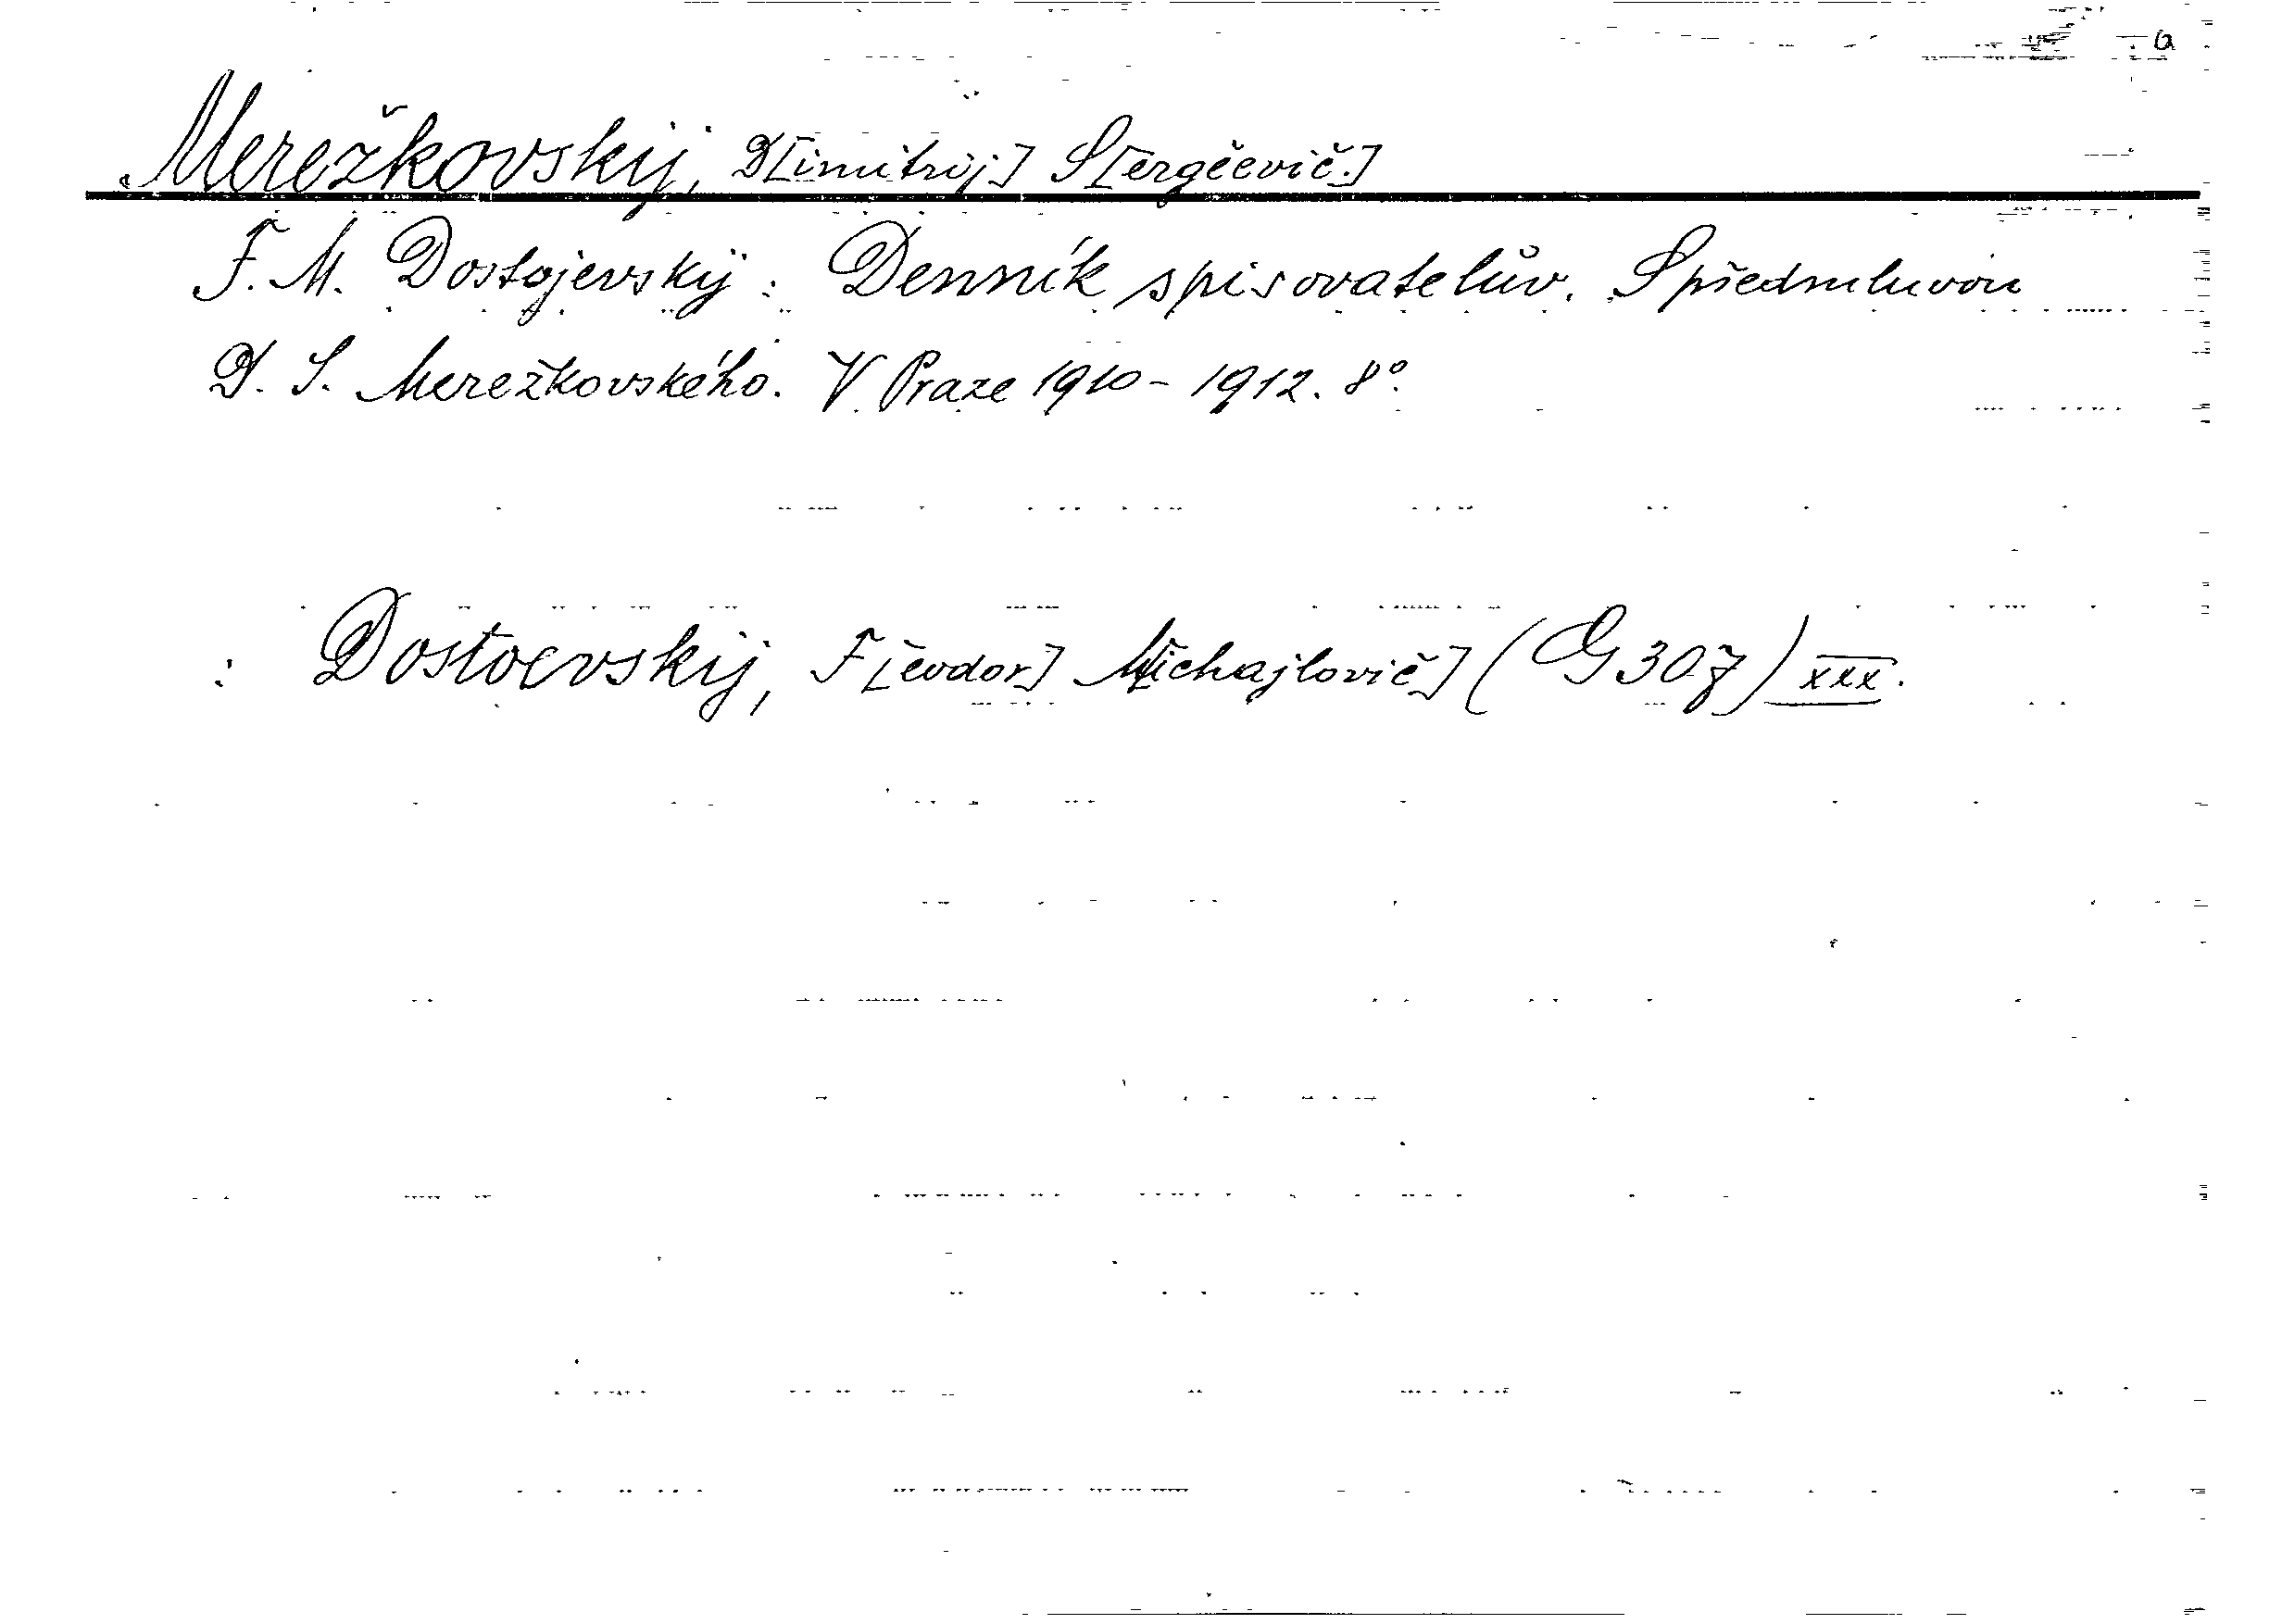 a
Merežkovskij, D[imitrij] S[ergěevič.]
F. M. Dostojevskij: Denník spisovatelův. S předmluvou
D. S. Merežkovského. V Praze 1910-1912. 8°.
: Dostoevskij, F[ěodor] M[ichajlovič] (G 307) XXX.